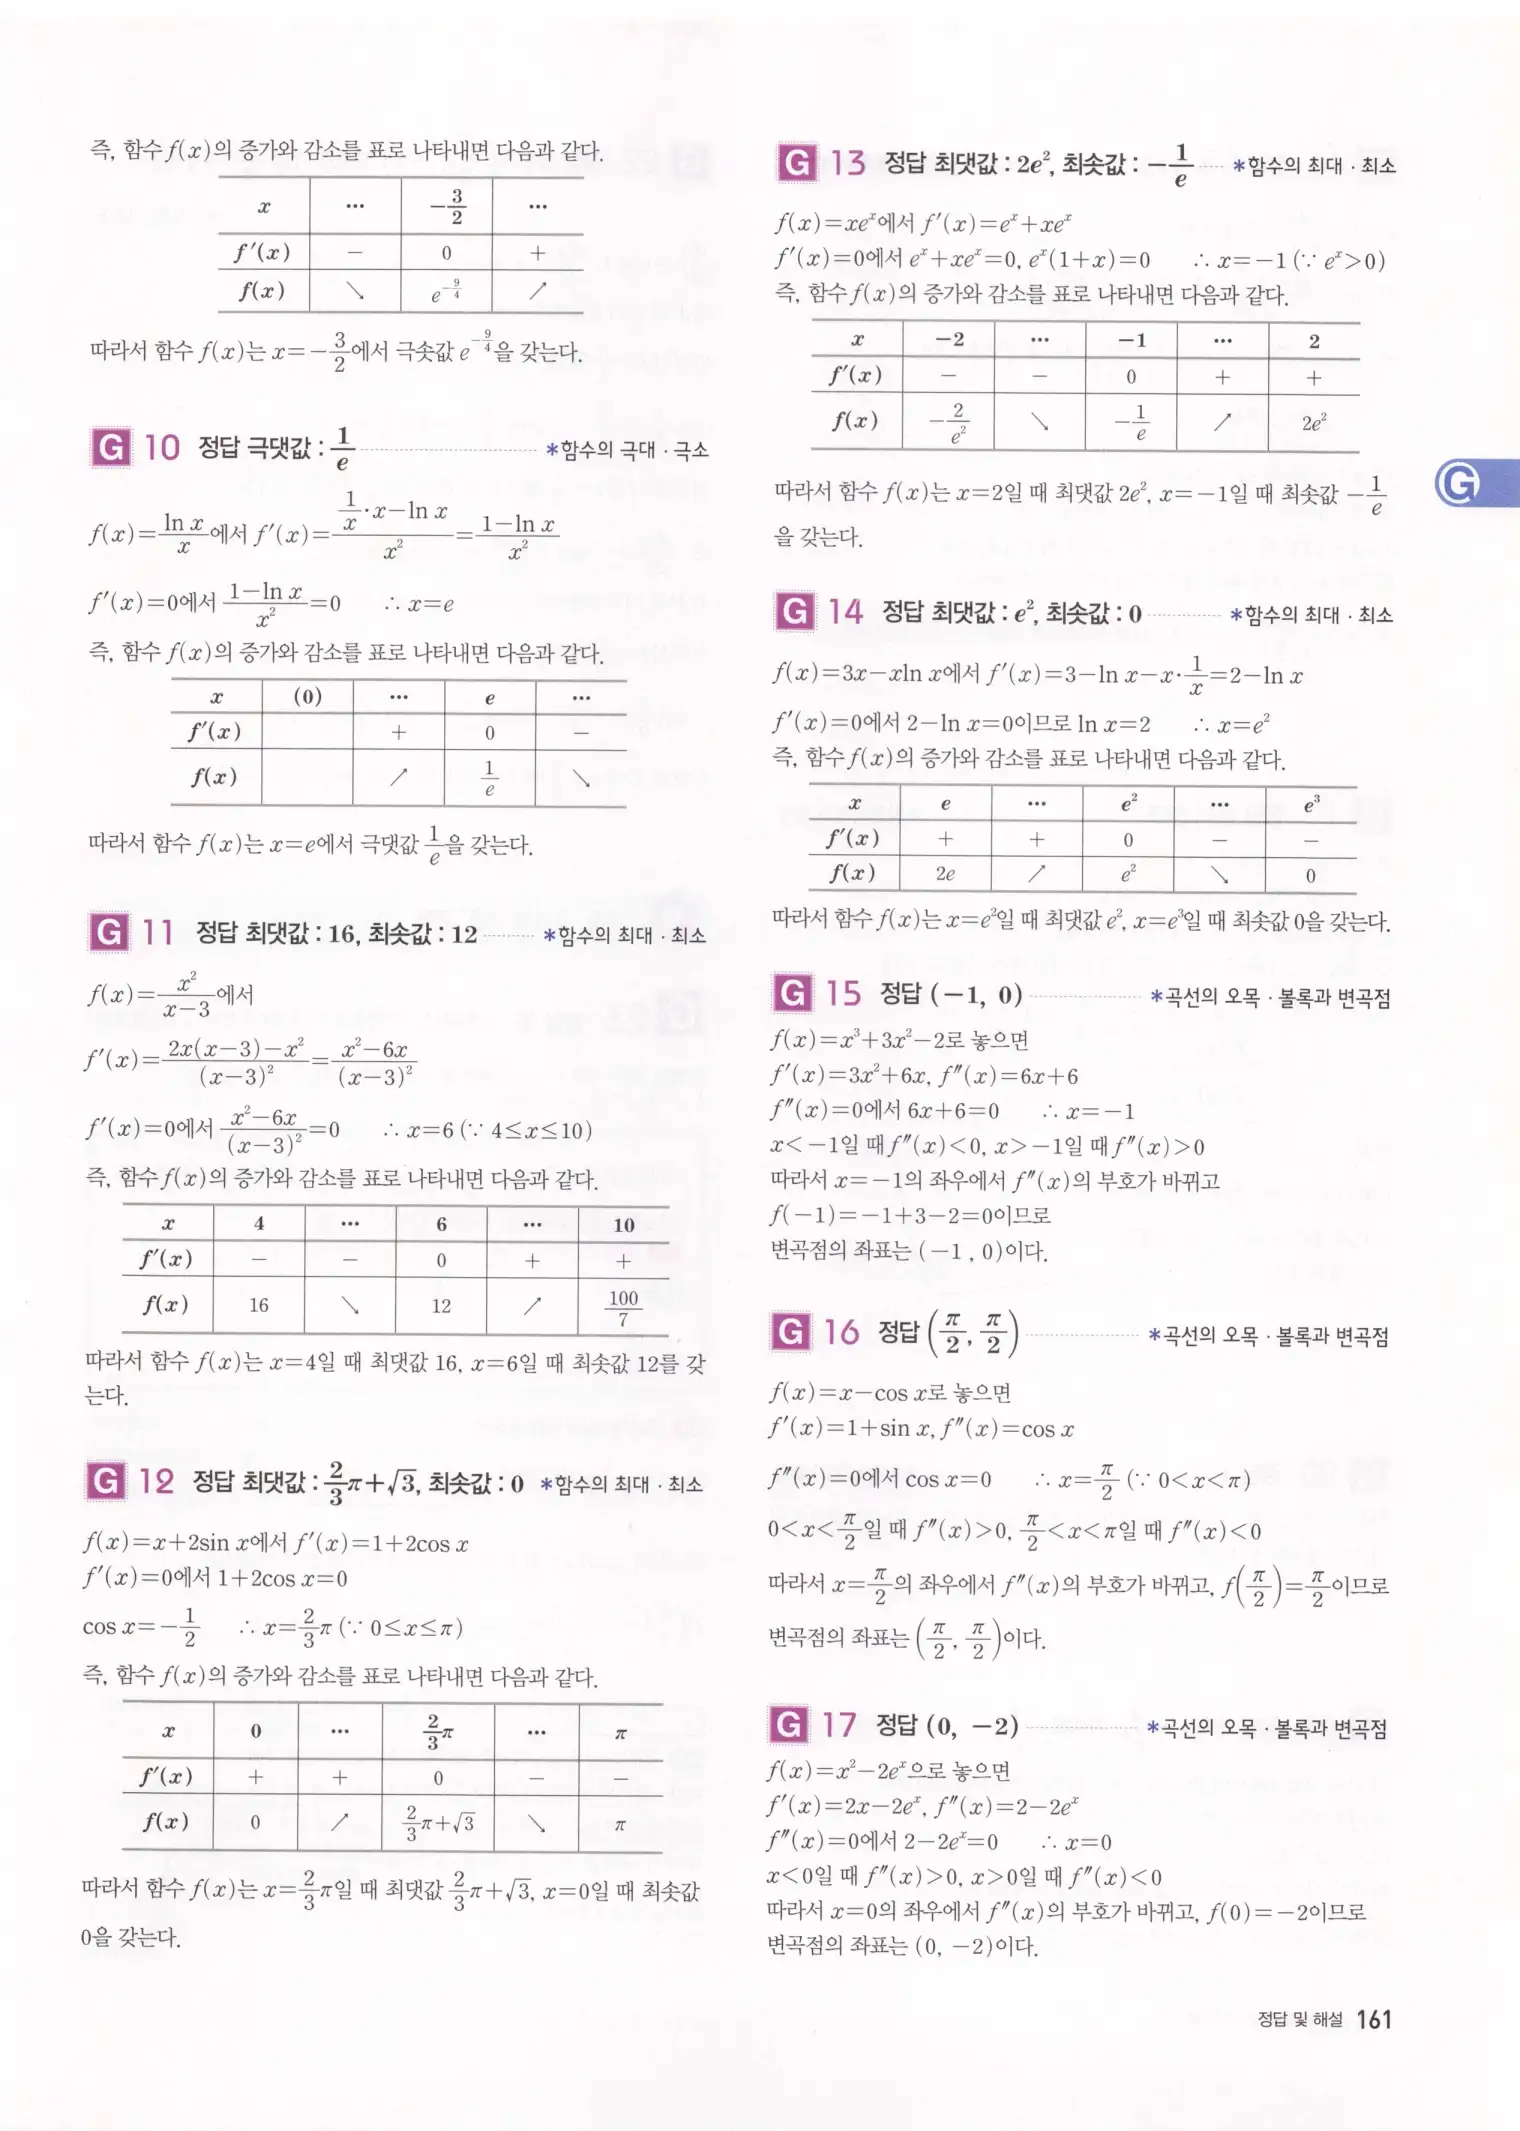 즉, 함수 f(x)의 증가와 감소를 표로 나타내면 다음과 같다.
x ⋯ −3/2 ⋯
f′(x) − 0 +
f(x) ↘ e^(−9/4) ↗
따라서 함수 f(x)는 x=−3/2에서 극솟값 e^(−9/4)을 갖는다.
G 10 정답 극댓값 : 1/e *함수의 극대 · 극소
f(x)=ln x/x에서 f′(x)=(1/x·x−ln x)/x²=(1−ln x)/x²
f′(x)=0에서 (1−ln x)/x²=0 ∴ x=e
즉, 함수 f(x)의 증가와 감소를 표로 나타내면 다음과 같다.
x (0) ⋯ e ⋯
f′(x) + 0 −
f(x) ↗ 1/e ↘
따라서 함수 f(x)는 x=e에서 극댓값 1/e을 갖는다.
G 11 정답 최댓값 : 16, 최솟값 : 12 *함수의 최대 · 최소
f(x)=x²/(x−3)에서
f′(x)=(2x(x−3)−x²)/(x−3)²=(x²−6x)/(x−3)²
f′(x)=0에서 (x²−6x)/(x−3)²=0 ∴ x=6 (∵ 4≤x≤10)
즉, 함수 f(x)의 증가와 감소를 표로 나타내면 다음과 같다.
x 4 ⋯ 6 ⋯ 10
f′(x) − − 0 + +
f(x) 16 ↘ 12 ↗ 100/7
따라서 함수 f(x)는 x=4일 때 최댓값 16, x=6일 때 최솟값 12를 갖
는다.
G 12 정답 최댓값 : 2/3π+√3, 최솟값 : 0 *함수의 최대 · 최소
f(x)=x+2sin x에서 f′(x)=1+2cos x
f′(x)=0에서 1+2cos x=0
cos x=−1/2 ∴ x=2/3π (∵ 0≤x≤π)
즉, 함수 f(x)의 증가와 감소를 표로 나타내면 다음과 같다.
x 0 ⋯ 2/3π ⋯ π
f′(x) + + 0 − −
f(x) 0 ↗ 2/3π+√3 ↘ π
따라서 함수 f(x)는 x=2/3π일 때 최댓값 2/3π+√3, x=0일 때 최솟값
0을 갖는다.
G 13 정답 최댓값 : 2e², 최솟값 : −1/e *함수의 최대 · 최소
f(x)=xeˣ에서 f′(x)=eˣ+xeˣ
f′(x)=0에서 eˣ+xeˣ=0, eˣ(1+x)=0 ∴ x=−1 (∵ eˣ>0)
즉, 함수 f(x)의 증가와 감소를 표로 나타내면 다음과 같다.
x −2 ⋯ −1 ⋯ 2
f′(x) − − 0 + +
f(x) −2/e² ↘ −1/e ↗ 2e²
따라서 함수 f(x)는 x=2일 때 최댓값 2e², x=−1일 때 최솟값 −1/e
을 갖는다.
G
G 14 정답 최댓값 : e², 최솟값 : 0 *함수의 최대 · 최소
f(x)=3x−xln x에서 f′(x)=3−ln x−x·1/x=2−ln x
f′(x)=0에서 2−ln x=0이므로 ln x=2 ∴ x=e²
즉, 함수 f(x)의 증가와 감소를 표로 나타내면 다음과 같다.
x e ⋯ e² ⋯ e³
f′(x) + + 0 − −
f(x) 2e ↗ e² ↘ 0
따라서 함수 f(x)는 x=e²일 때 최댓값 e², x=e³일 때 최솟값 0을 갖는다.
G 15 정답 (−1, 0) *곡선의 오목 · 볼록과 변곡점
f(x)=x³+3x²−2로 놓으면
f′(x)=3x²+6x, f″(x)=6x+6
f″(x)=0에서 6x+6=0 ∴ x=−1
x<−1일 때 f″(x)<0, x>−1일 때 f″(x)>0
따라서 x=−1의 좌우에서 f″(x)의 부호가 바뀌고
f(−1)=−1+3−2=0이므로
변곡점의 좌표는 (−1, 0)이다.
G 16 정답 (π/2, π/2) *곡선의 오목 · 볼록과 변곡점
f(x)=x−cos x로 놓으면
f′(x)=1+sin x, f″(x)=cos x
f″(x)=0에서 cos x=0 ∴ x=π/2 (∵ 0<x<π)
0<x<π/2일 때 f″(x)>0, π/2<x<π일 때 f″(x)<0
따라서 x=π/2의 좌우에서 f″(x)의 부호가 바뀌고, f(π/2)=π/2이므로
변곡점의 좌표는 (π/2, π/2)이다.
G 17 정답 (0, −2) *곡선의 오목 · 볼록과 변곡점
f(x)=x²−2eˣ으로 놓으면
f′(x)=2x−2eˣ, f″(x)=2−2eˣ
f″(x)=0에서 2−2eˣ=0 ∴ x=0
x<0일 때 f″(x)>0, x>0일 때 f″(x)<0
따라서 x=0의 좌우에서 f″(x)의 부호가 바뀌고, f(0)=−2이므로
변곡점의 좌표는 (0, −2)이다.
정답 및 해설 161